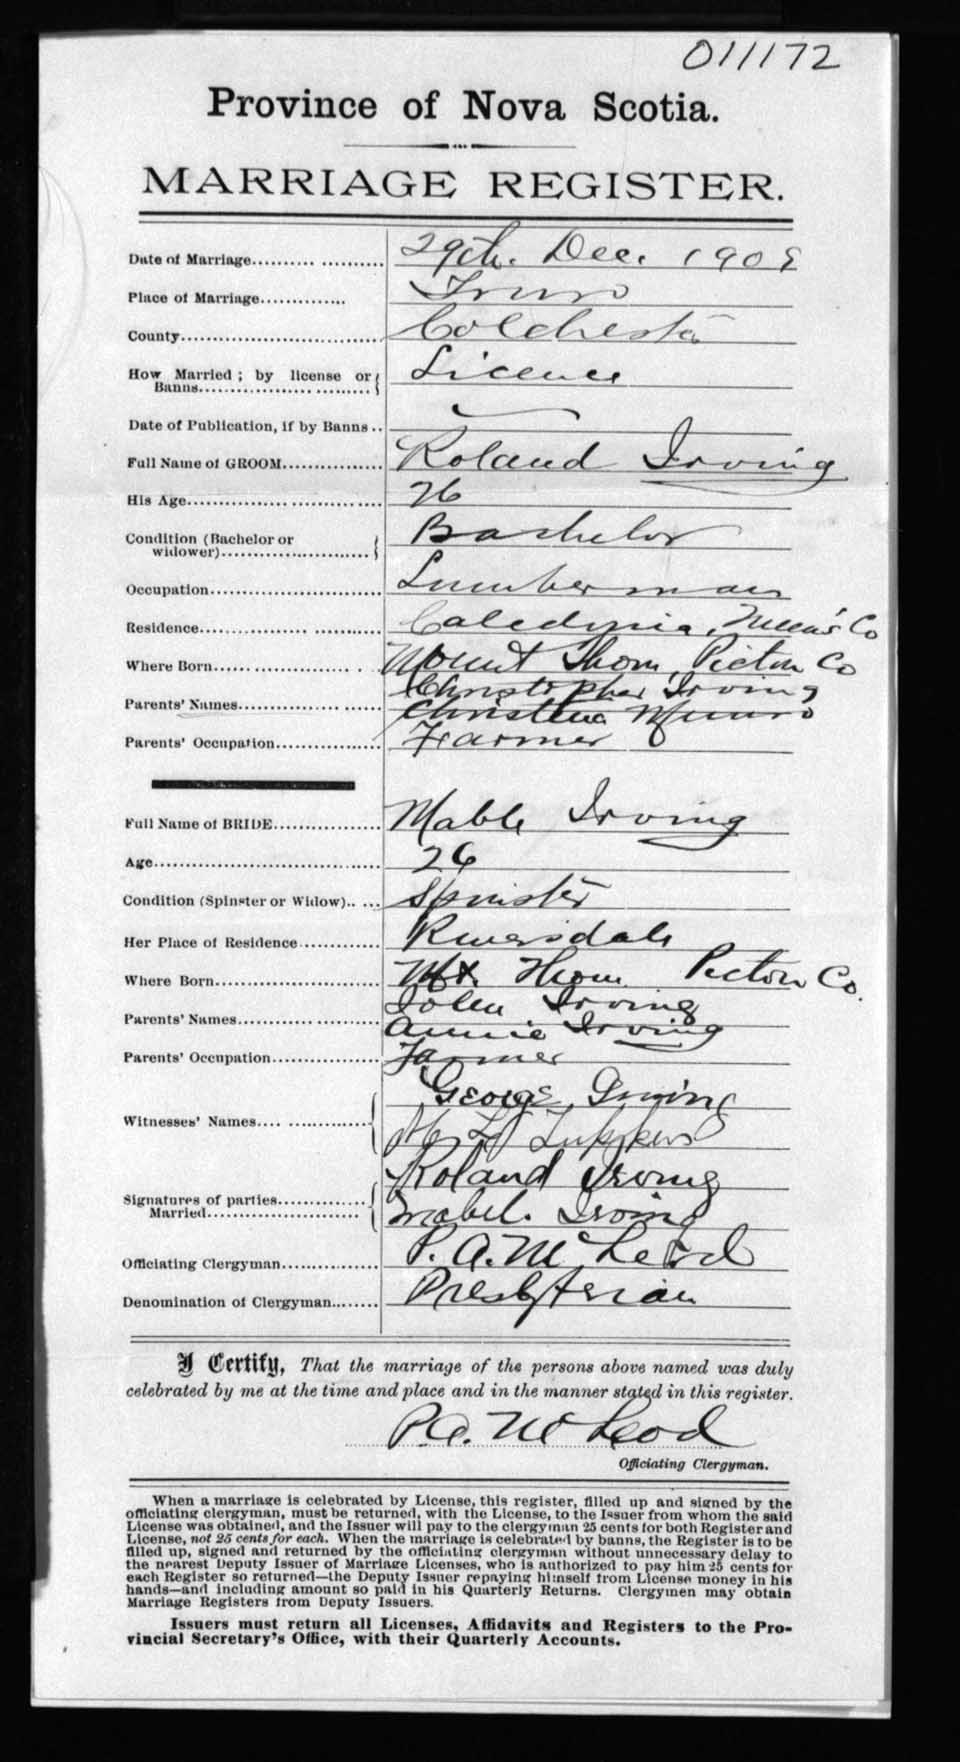 011172
Province of Nova Scotia.
MARRIAGE REGISTER.
Date of Marriage.................... 29th. Dec. 1908
Place of Marriage.............. Truro
County.............................. Colchester
How Married ; by license or Banns.................... Licence
Date of Publication, if by Banns ..
Full Name of GROOM............... Roland Irving
His Age............................. 26
Condition (Bachelor or widower)........................ Bachelor
Occupation.......................... Lumberman
Residence........................... Caledonia, Queens' Co
Where Born...................... Mount Thom Pictou Co
Christopher Irving
Parents' Names..................... Christena Munro
Parents' Occupation................ Farmer
Full Name of BRIDE................ Mable Irving
Age.................................. 26
Condition (Spinster or Widow).. ... Spinster
Her Place of Residence............ Riversdale
Where Born......................... Mt. Thom Pictou Co.
John Irving
Parents' Names..................... Annie Irving
Parents' Occupation................ Farmer
George Irving
Witnesses' Names.... ............. L
Roland Irving
Signatures of parties............. Married....................... Mabel. Irving
Officiating Clergyman............... P. A. McLeod
Denomination of Clergyman........ Presbyterian
I Certify, That the marriage of the persons above named was duly
celebrated by me at the time and place and in the manner stated in this register.
P.A. McLeod
Officiating Clergyman.
When a marriage is celebrated by License, this register, filled up and signed by the
officiating clergyman, must be returned, with the License, to the Issuer from whom the said
License was obtained, and the Issuer will pay to the clergyman 25 cents for both Register and
License, not 25 cents for each. When the marriage is celebrated by banns, the Register is to be
filled up, signed and returned by the officiating clergyman without unnecessary delay to
the nearest Deputy Issuer of Marriage Licenses, who is authorized to pay him 25 cents for
each Register so returned—the Deputy Issuer repaying himself from License money in his
hands—and including amount so paid in his Quarterly Returns. Clergymen may obtain
Marriage Registers from Deputy Issuers.
Issuers must return all Licenses, Affidavits and Registers to the Pro-
vincial Secretary's Office, with their Quarterly Accounts.